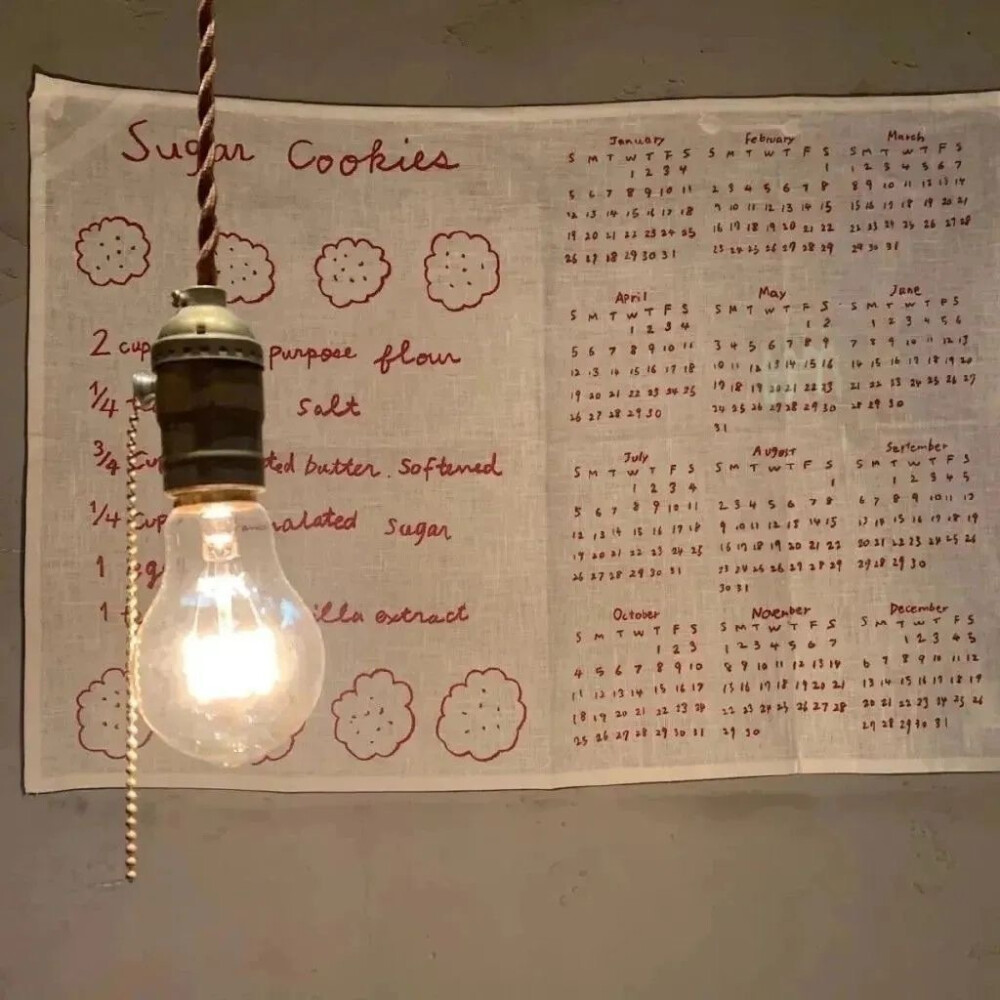 Sugar Cookies
2 purpose flour
1/4 Salt
3/4 butter. Softened
1/4 Cup Sugar
1
1 extract
January
S M T W T F S
1 2 3 4
5 6 7 8 9 10 11
12 13 14 15 16 17 18
19 20 21 22 23 24 25
26 27 28 29 30 31
February
S M T W T F S
1
2 3 4 5 6 7 8
9 10 11 12 13 14 15
16 17 18 19 20 21 22
23 24 25 26 27 28 29
March
S M T W T F S
1 2 3 4 5 6 7
8 9 10 11 12 13 14
15 16 17 18 19 20 21
22 23 24 25 26 27 28
29 30 31
April
S M T W T F S
1 2 3 4
5 6 7 8 9 10 11
12 13 14 15 16 17 18
19 20 21 22 23 24 25
26 27 28 29 30
May
S M T W T F S
1 2
3 4 5 6 7 8 9
10 11 12 13 14 15 16
17 18 19 20 21 22 23
24 25 26 27 28 29 30
31
June
S M T W T F S
1 2 3 4 5 6
7 8 9 10 11 12 13
14 15 16 17 18 19 20
21 22 23 24 25 26 27
28 29 30
July
S M T W T F S
1 2 3 4
5 6 7 8 9 10 11
12 13 14 15 16 17 18
19 20 21 22 23 24 25
26 27 28 29 30 31
August
S M T W T F S
1
2 3 4 5 6 7 8
9 10 11 12 13 14 15
16 17 18 19 20 21 22
23 24 25 26 27 28 29
30 31
September
S M T W T F S
1 2 3 4 5
6 7 8 9 10 11 12
13 14 15 16 17 18 19
20 21 22 23 24 25 26
27 28 29 30
October
S M T W T F S
1 2 3
4 5 6 7 8 9 10
11 12 13 14 15 16 17
18 19 20 21 22 23 24
25 26 27 28 29 30 31
November
S M T W T F S
1 2 3 4 5 6 7
8 9 10 11 12 13 14
15 16 17 18 19 20 21
22 23 24 25 26 27 28
29 30
December
S M T W T F S
1 2 3 4 5
6 7 8 9 10 11 12
13 14 15 16 17 18 19
20 21 22 23 24 25 26
27 28 29 30 31